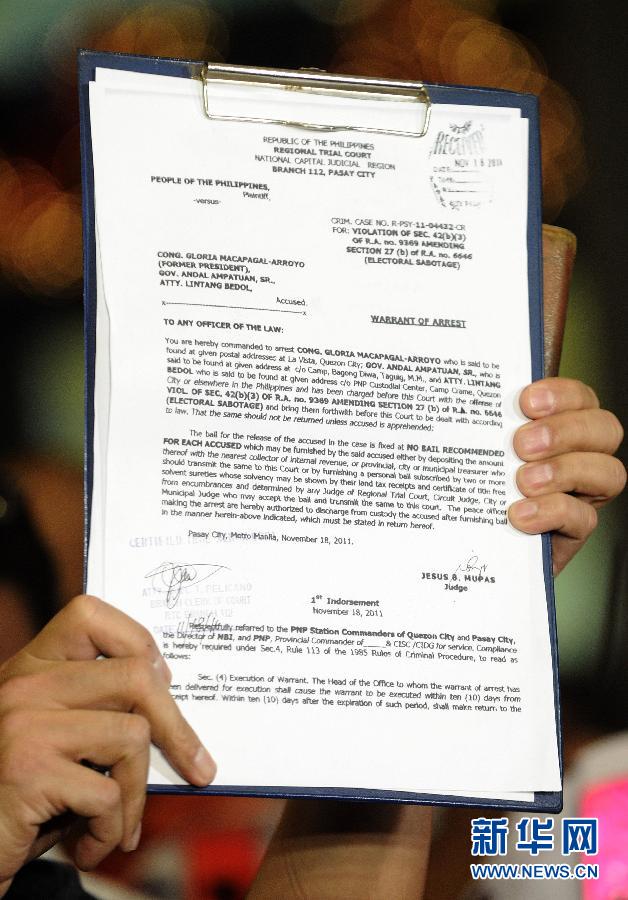 REPUBLIC OF THE PHILIPPINES
REGIONAL TRIAL COURT
NATIONAL CAPITAL JUDICIAL REGION
BRANCH 112, PASAY CITY
RECEIVED
NOV 18 2011
DATE:
PEOPLE OF THE PHILIPPINES,
Plaintiff,
-versus-
CRIM. CASE NO. R-PSY-11-04432-CR
FOR: VIOLATION OF SEC. 42(b)(3)
OF R.A. no. 9369 AMENDING
SECTION 27 (b) of R.A. no. 6646
(ELECTORAL SABOTAGE)
CONG. GLORIA MACAPAGAL-ARROYO
(FORMER PRESIDENT),
GOV. ANDAL AMPATUAN, SR.,
ATTY. LINTANG BEDOL,
Accused.
x----------------------------------x
WARRANT OF ARREST
TO ANY OFFICER OF THE LAW:
You are hereby commanded to arrest CONG. GLORIA MACAPAGAL-ARROYO who is said to be
found at given postal addresses at La Vista, Quezon City; GOV. ANDAL AMPATUAN, SR., who is
said to be found at given address at c/o Camp, Bagong Diwa, Taguig, M.M., and ATTY. LINTANG
BEDOL who is said to be found at given address c/o PNP Custodial Center, Camp Crame, Quezon
City or elsewhere in the Philippines and has been charged before this Court with the offense of
VIOL. OF SEC. 42(b)(3) OF R.A. no. 9369 AMENDING SECTION 27 (b) of R.A. no. 6646
(ELECTORAL SABOTAGE) and bring them forthwith before this Court to be dealt with according
to law. That the same should not be returned unless accused is apprehended:
The bail for the release of the accused in the case is fixed at NO BAIL RECOMMENDED
FOR EACH ACCUSED which may be furnished by the said accused either by depositing the amount
thereof with the nearest collector of internal revenue, or provincial, city or municipal treasurer who
should transmit the same to this Court or by furnishing a personal bail subscribed by two or more
solvent sureties whose solvency may be shown by their land tax receipts and certificate of title free
from encumbrances and determined by any Judge of Regional Trial Court, Circuit Judge, City or
Municipal Judge who may accept the bail and transmit the same to this court. The peace officer
making the arrest are hereby authorized to discharge from custody the accused after furnishing bail
in the manner herein-above indicated, which must be stated in return hereof.
Pasay City, Metro Manila, November 18, 2011.
CERTIFIED
JESUS B. MUPAS
Judge
PELICANO
BRANCH CLERK OF COURT
DATE
1st Indorsement
November 18, 2011
Respectfully referred to the PNP Station Commanders of Quezon City and Pasay City,
the Director of NBI, and PNP, Provincial Commander of_____& CISC /CIDG for service. Compliance
is hereby required under Sec.4, Rule 113 of the 1985 Rules of Criminal Procedure, to read as
follows:
Sec. (4) Execution of Warrant. The Head of the Office to whom the warrant of arrest has
been delivered for execution shall cause the warrant to be executed within ten (10) days from
receipt hereof. Within ten (10) days after the expiration of such period, shall make return to the
新华网
WWW.NEWS.CN